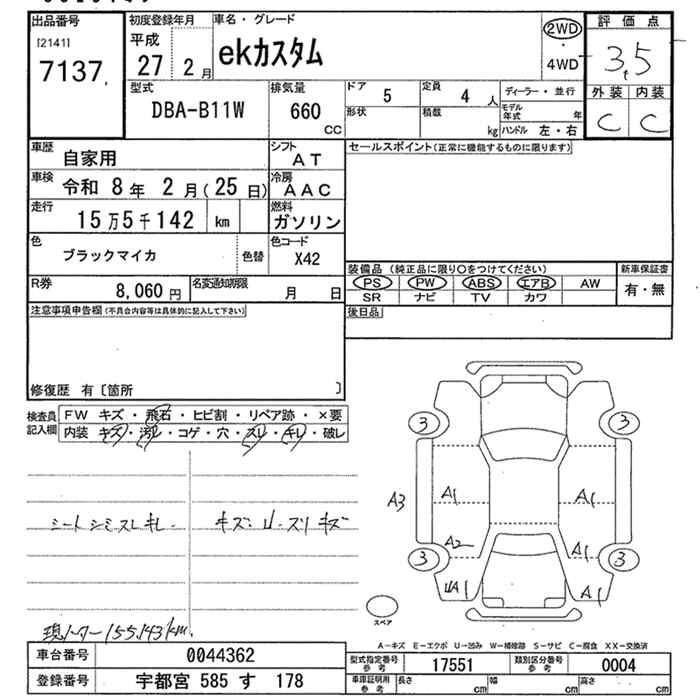 出品番号 初度登録年月 車名・グレード 評価点
[2141] 平成 ekカスタム 2WD ・ 4WD 3.5
7137 27 2月
外装 内装
C C
型式 排気量 ドア 定員 ディーラー・並行
DBA-B11W 660 CC 5 4人 モデル年式 年
形状 積載 kg ハンドル 左・右
車歴 自家用 シフト AT セールスポイント(正常に機能するものに限ります)
車検 令和 8年 2月(25日) 冷房 AAC
走行 15万5千142 km 燃料 ガソリン
色 ブラックマイカ 色替 色コード X42
装備品 (純正品に限り○をつけてください) 新車保証書
R券 8,060円 名変通知期限 月 日 PS PW ABS エアB AW 有・無
SR ナビ TV カワ
注意事項申告欄(不具合内容等は具体的に記入して下さい) 後日品
修復歴 有〔箇所 〕
検査員記入欄 FW キズ・飛石・ヒビ割・リペア跡・×要
内装 キズ・汚レ・コゲ・穴・スレ・キレ・破レ
3 3
A3 A1 A1
A2 A1
3 3
UA1 A1
シートシミスレキレ キズ・U・スリキズ
現メーター155,143km
スペア
A-キズ E-エクボ U-凹み W-補修跡 S-サビ C-腐食 XX-交換済
車台番号 0044362 型式指定番号 参考 17551 類別区分番号 参考 0004
登録番号 宇都宮 585 す 178 車庫証明用 参考 長さ cm 幅 cm 高さ cm